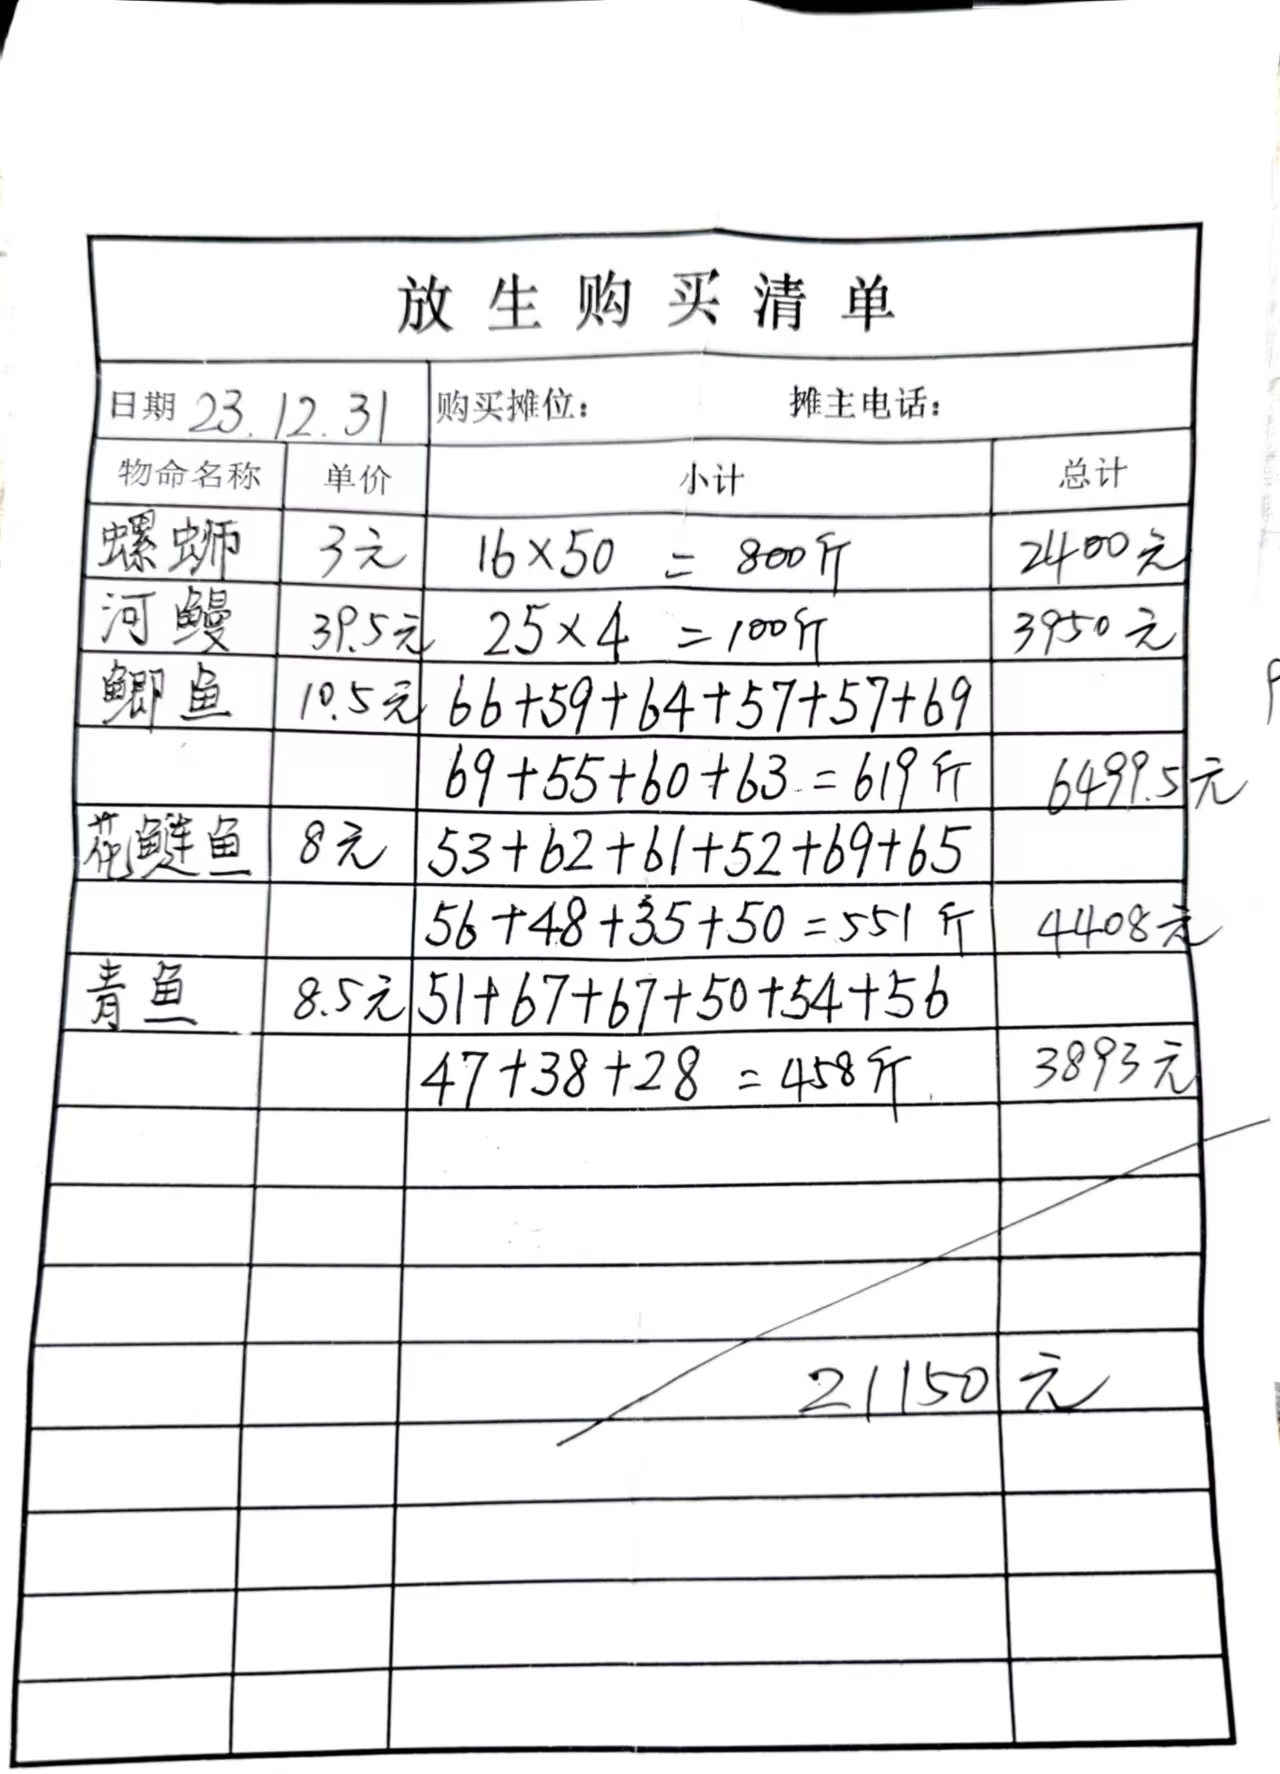 放生购买清单
日期 23.12.31 购买摊位： 摊主电话：
物命名称 单价 小计 总计
螺蛳 3元 16×50 = 800斤 2400元
河鳗 39.5元 25×4 =100斤 3950元
鲫鱼 10.5元 66+59+64+57+57+69
69+55+60+63=619斤 6499.5元
花鲢鱼 8元 53+62+61+52+69+65
56+48+35+50=551斤 4408元
青鱼 8.5元 51+67+67+50+54+56
47+38+28 =458斤 3893元
21150元